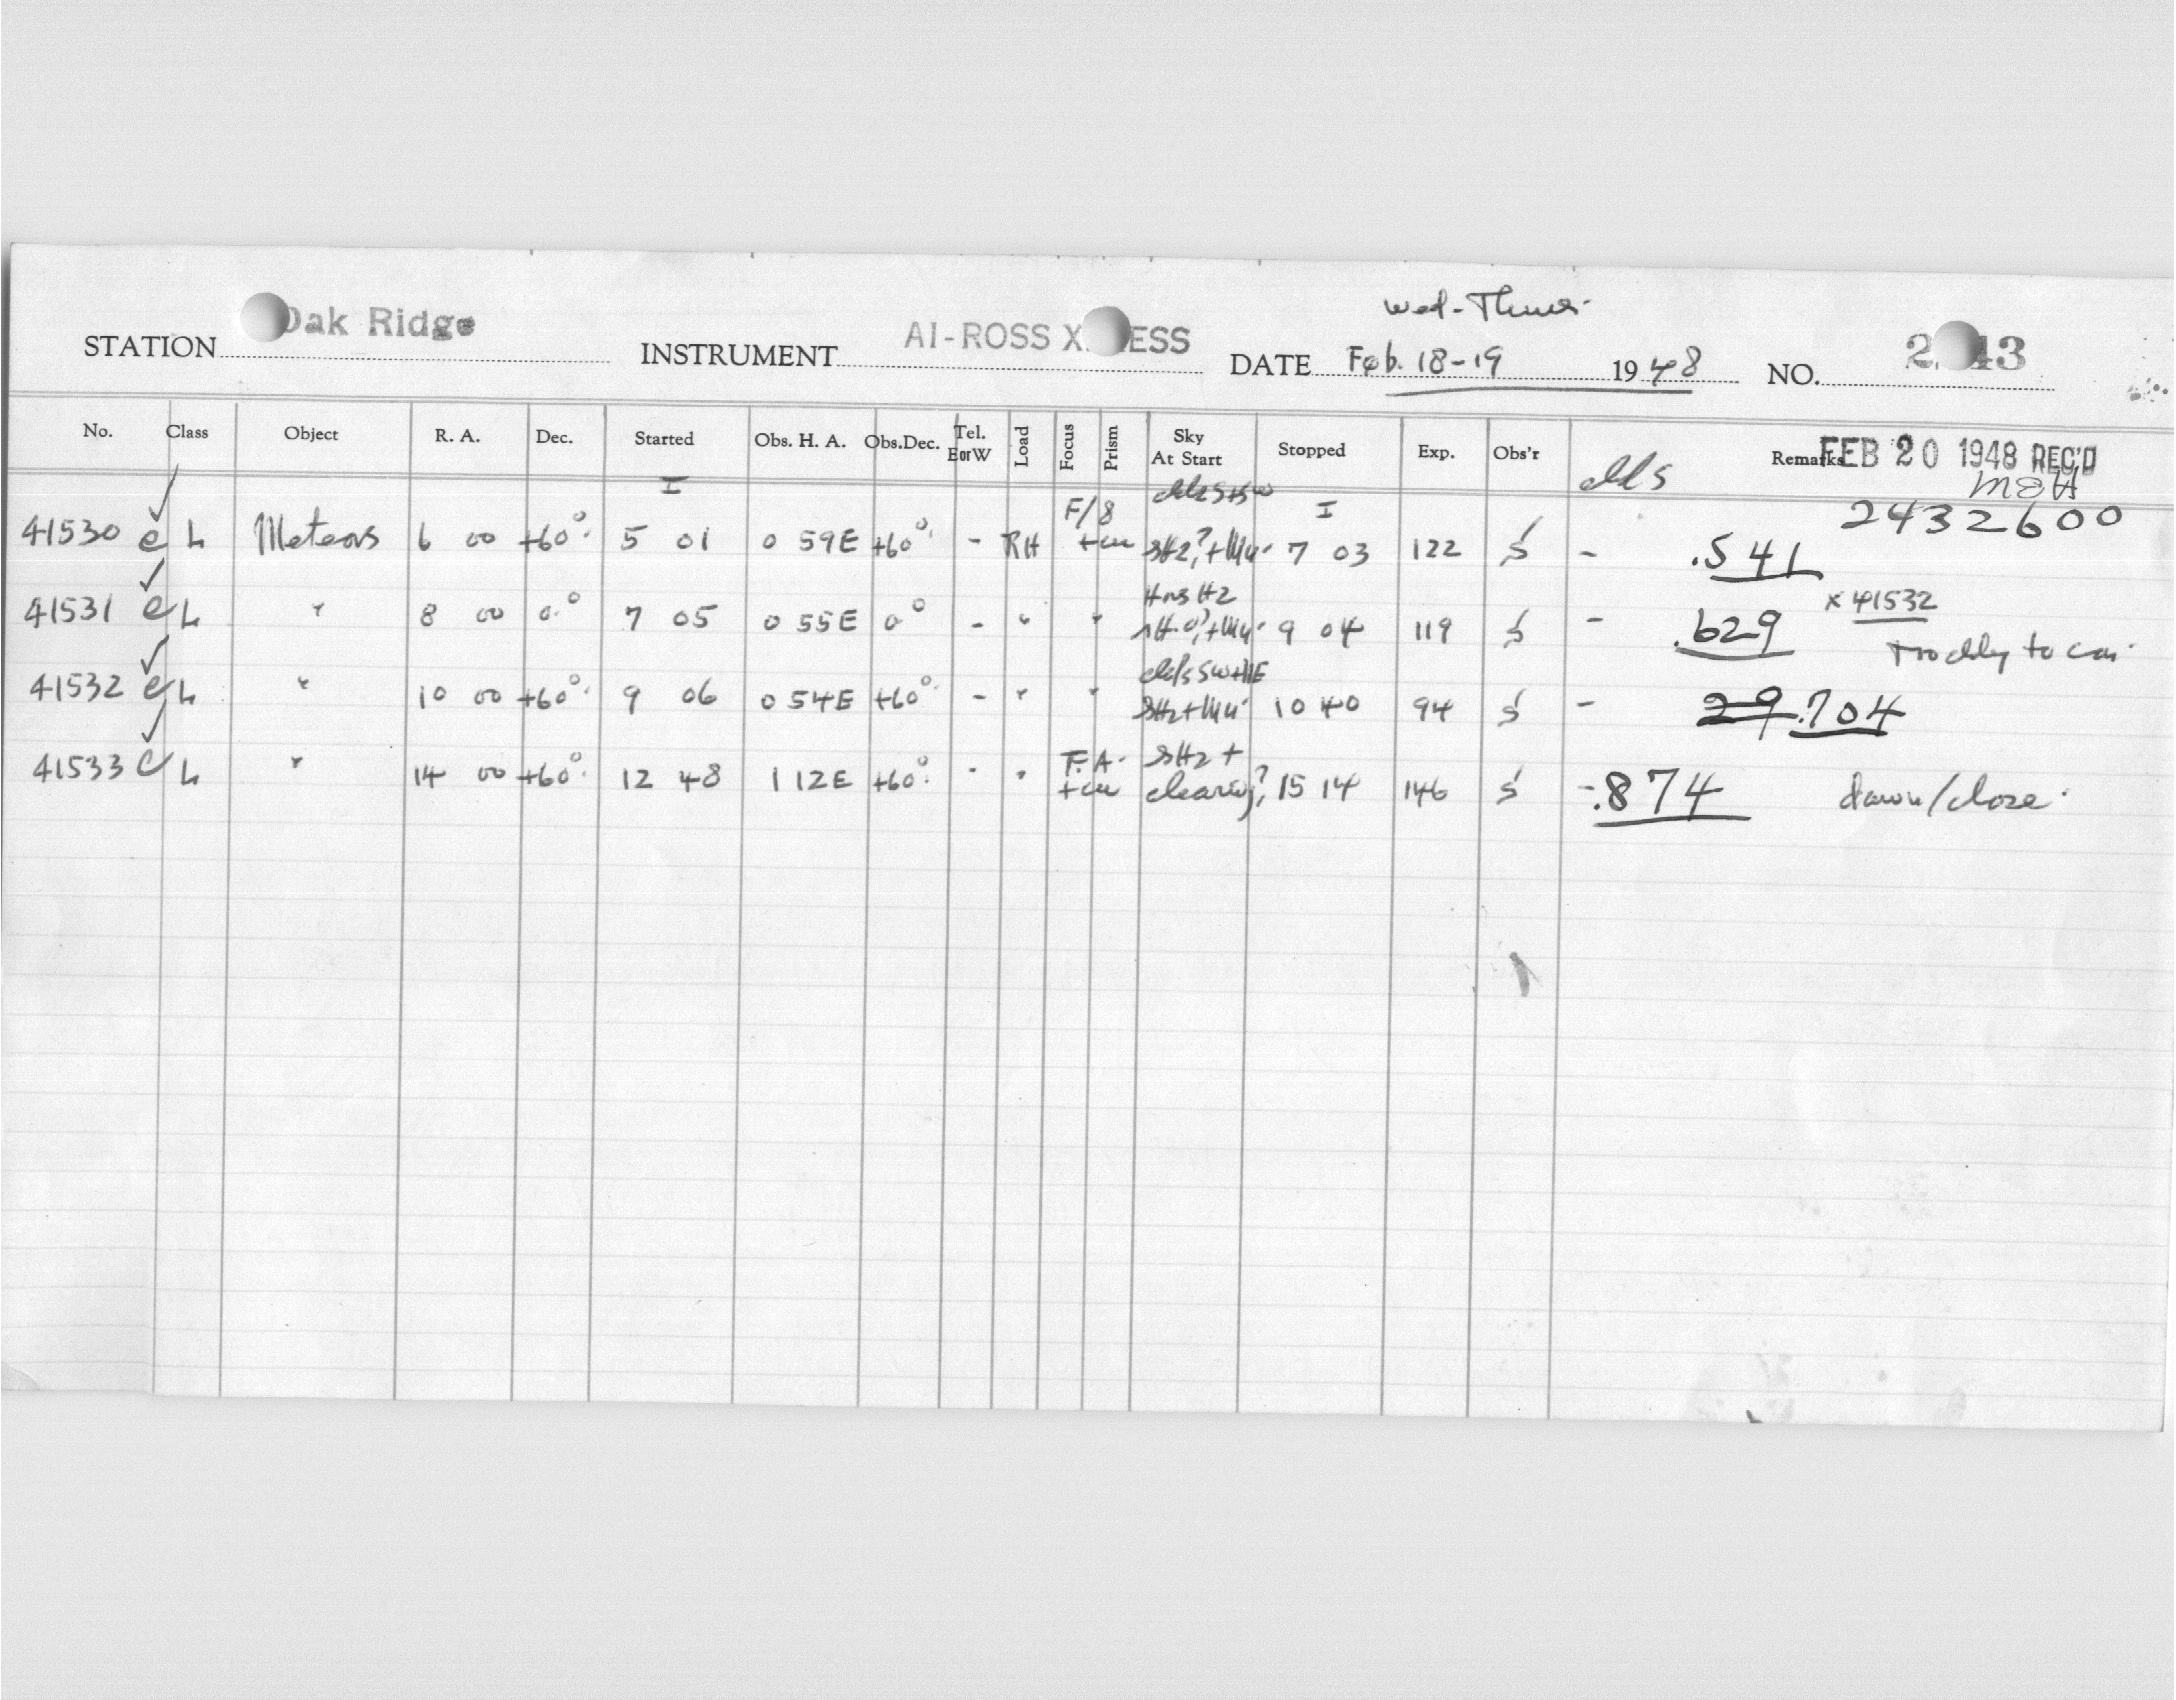 Wed-Thurs.
STATION Oak Ridge INSTRUMENT AI-ROSS X ESS DATE Feb. 18-19 1948 NO. 2 43
No. Class Object R. A. Dec. Started Obs. H. A. Obs.Dec. Tel. E or W Load Focus Prism Sky At Start Stopped Exp. Obs'r Remarks
FEB 20 1948 REC'D
I I 2432600
41530 e L Meteors 6 00 +60° 5 01 0 59E +60° - RH F/8 7 03 122 S - .541
x 41532
41531 e L " 8 00 0° 7 05 0 55E 0° - " " 9 04 119 S - .629 to
41532 e L " 10 00 +60° 9 06 0 54E +60° - " " 10 40 94 S - 29.704
41533 e L " 14 00 +60° 12 48 1 12E +60° " " F.A. clearing? 15 14 146 S - .874 dawn/close.